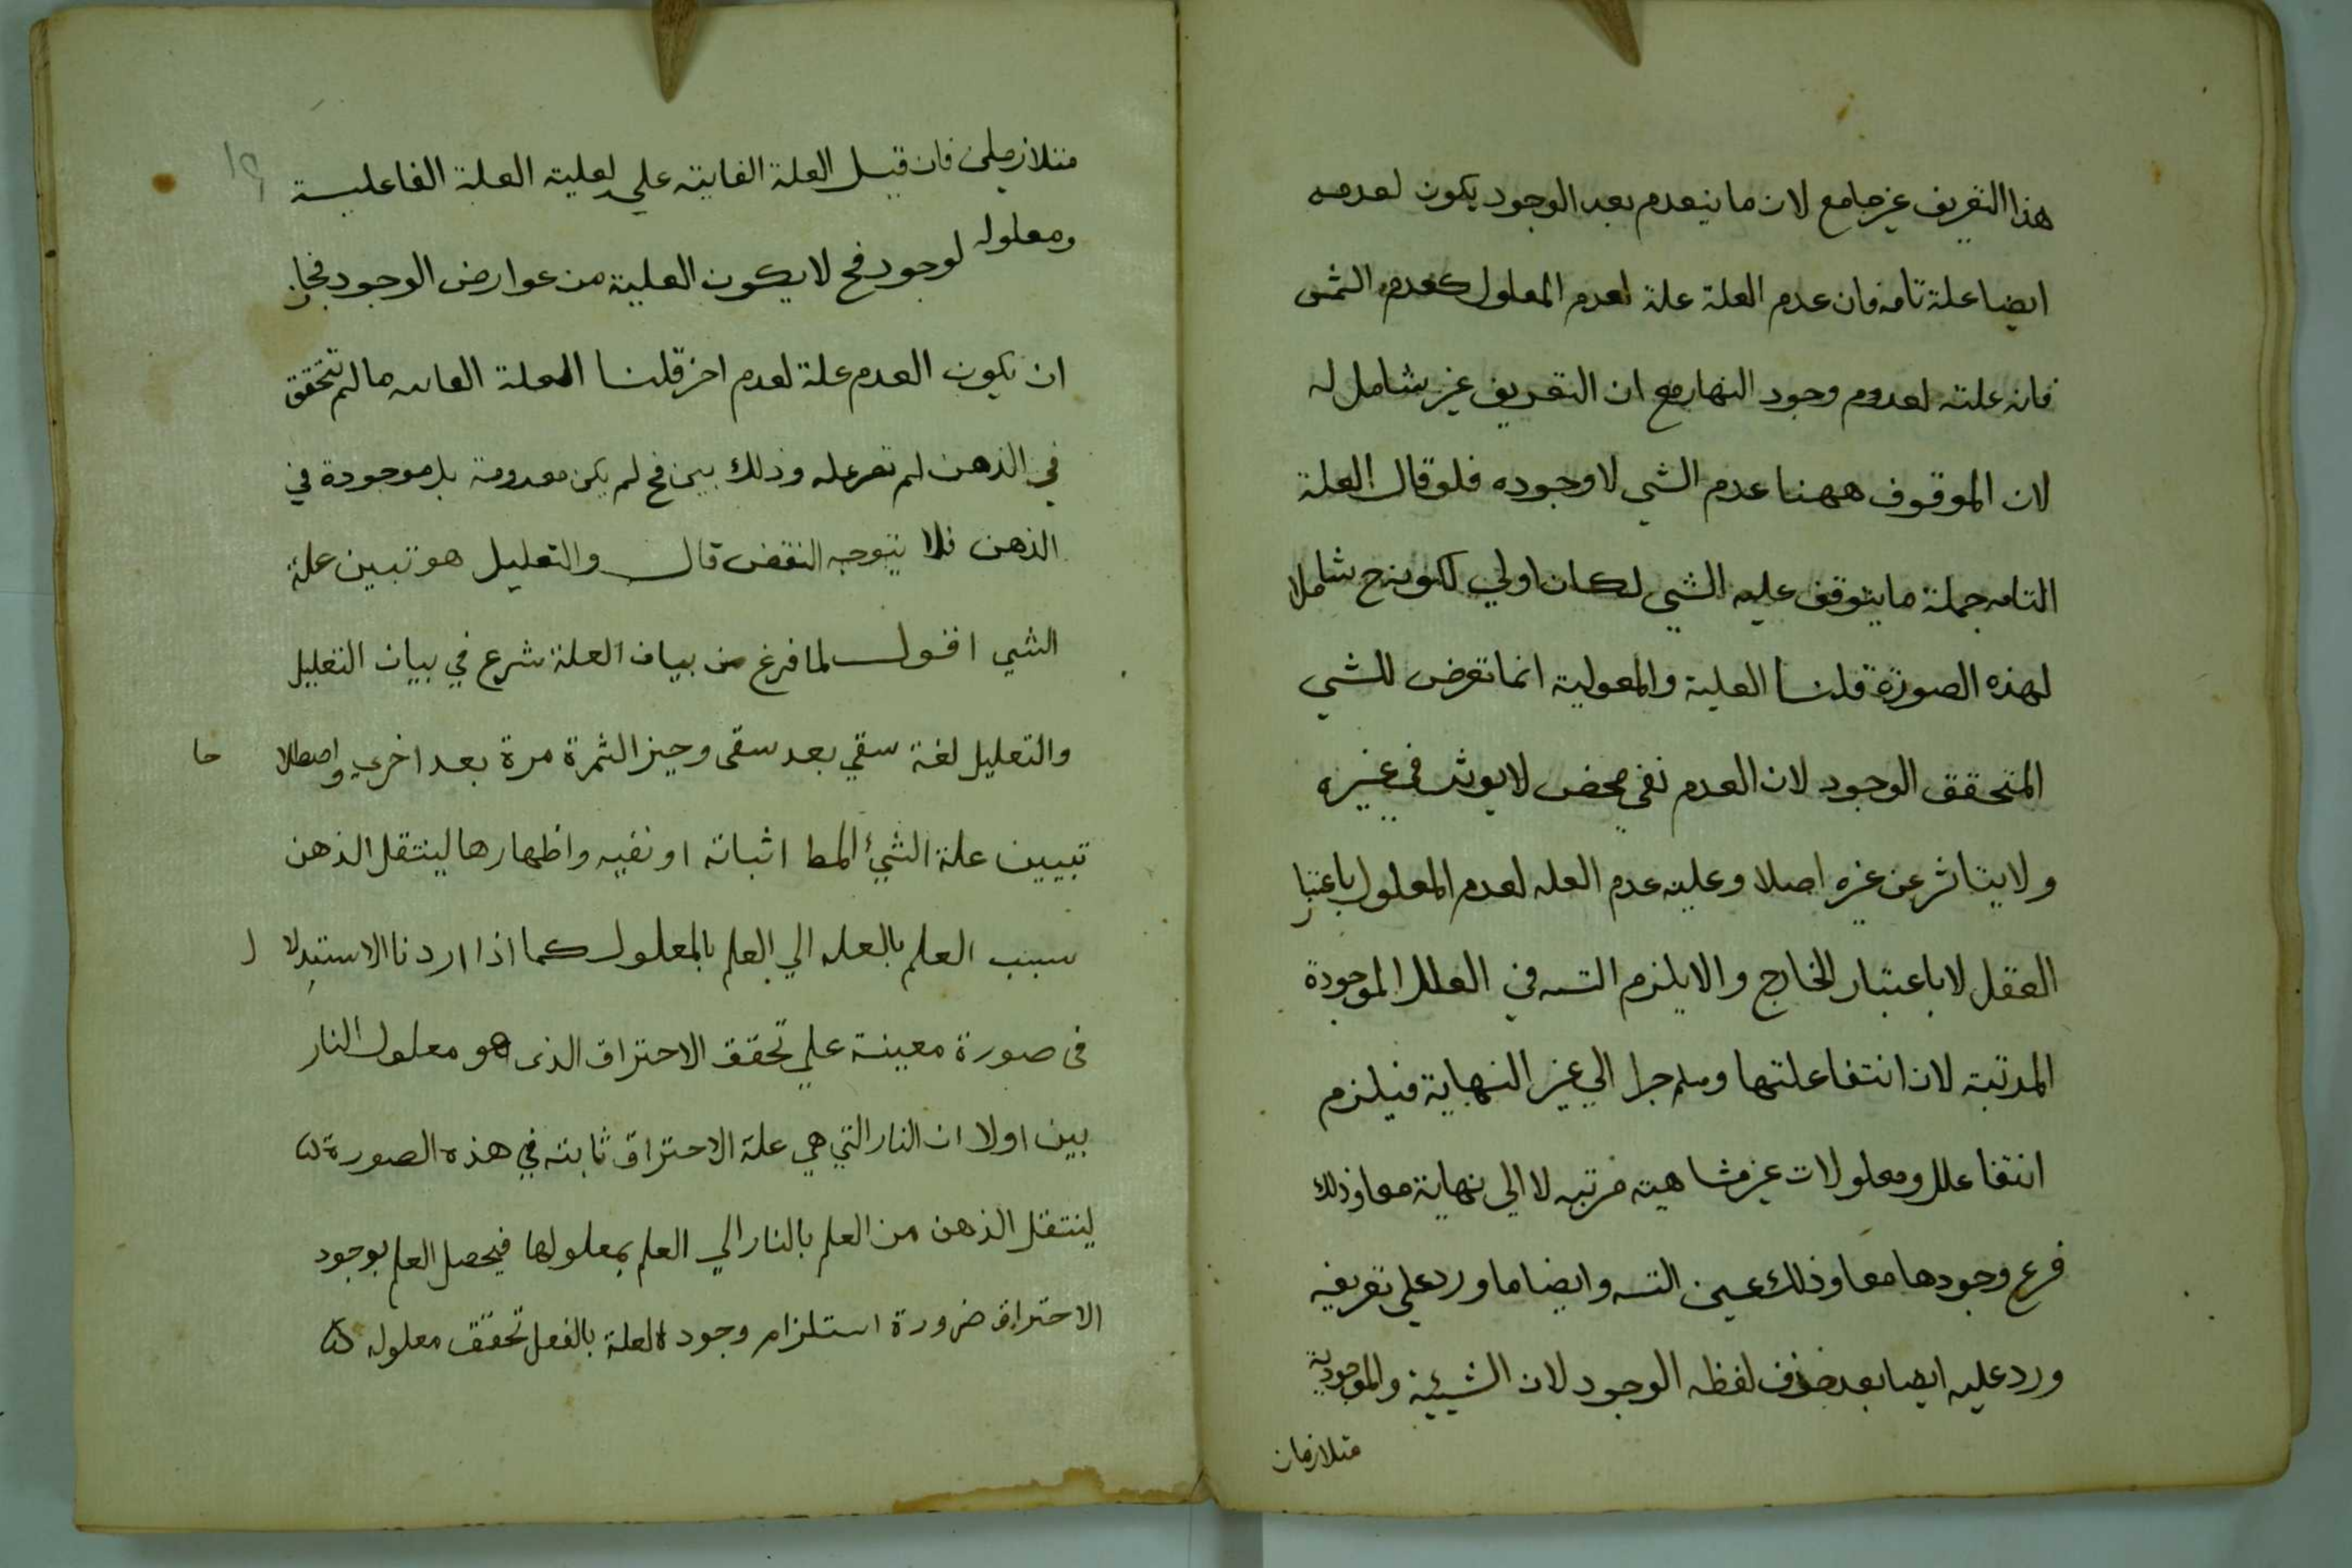 هذا التعريف غير جامع لان ما ينعدم بعد الوجود يكون لعدمه
ايضا علة تامه فان عدم العلة علة لعدم المعلول كعدم الشمس
فانه علته لعدوم وجود النهار مع ان التعريف غير شامل له
لان الموقوف ههنا عدم الشي لا وجوده فلو قال العلة
التامه جملة ما يتوقف عليه الشي لكان اولي لكونه ح شاملا
لهذه الصورة قلنا العلية والمعولية انما تعرض للشي
المتحقق الوجود لان العدم نفي محض لا يوثر في غيره
ولا يتاثر عن غيره اصلا وعليه عدم العله لعدم المعلول باعتبار
العقل لا باعتبار الخارج والا يلزم التسه في العلل الموجودة
المرتبة لان انتفا علتها وهلم جرا الي غير النهاية فيلزم
انتفا علل ومعلولات غير متناهيه مرتبه لا الي نهاية معا وذلك
فرع وجودها معا وذلك عين التسه وايضا ما ورد علي تعريفه
ورد عليه ايضا بعد حذف لفظه الوجود لان الشيئية والموجودية
متلازمان
١٩
متلازمين فان قيل العلة الغايته علي لعلية العلة الفاعلية
ومعلوله لوجود فح لا يكون العلية من عوارض الوجود فجاز
ان يكون العدم علة لعدم اخر قلنا العلة الغاىىه ما لم تتحقق
في الذهن لم تصر عله وذلك بين فح لم يكن معدومة بل موجودة في
الذهن فلا يتوجه النقض قال والتعليل هو تبين علة
الشي اقول لما فرغ من بيان العلة شرع في بيان التعليل
والتعليل لغة سقي بعد سقى وجيز الثمرة مرة بعد اخري واصطلا حا
تبيين علة الشيء المط اثباته او نفيه واظهارها لينتقل الذهن
سبب العلم بالعله الي العلم بالمعلول كما اذا اردنا الاستدلا ل
فى صورة معينة علي تحقق الاحتراق الذى هو معلول النار
بين اولا ان النار التي هي علة الاحتراق ثابته في هذه الصورة
لينتقل الذهن من العلم بالنار الي العلم بمعلولها فيحصل العلم بوجود
الاحتراق ضرورة استلزام وجود العلة بالفعل تحقق معلوله